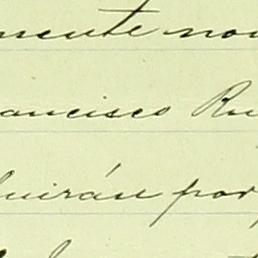 mente nom
ancisco Ru
luirán por